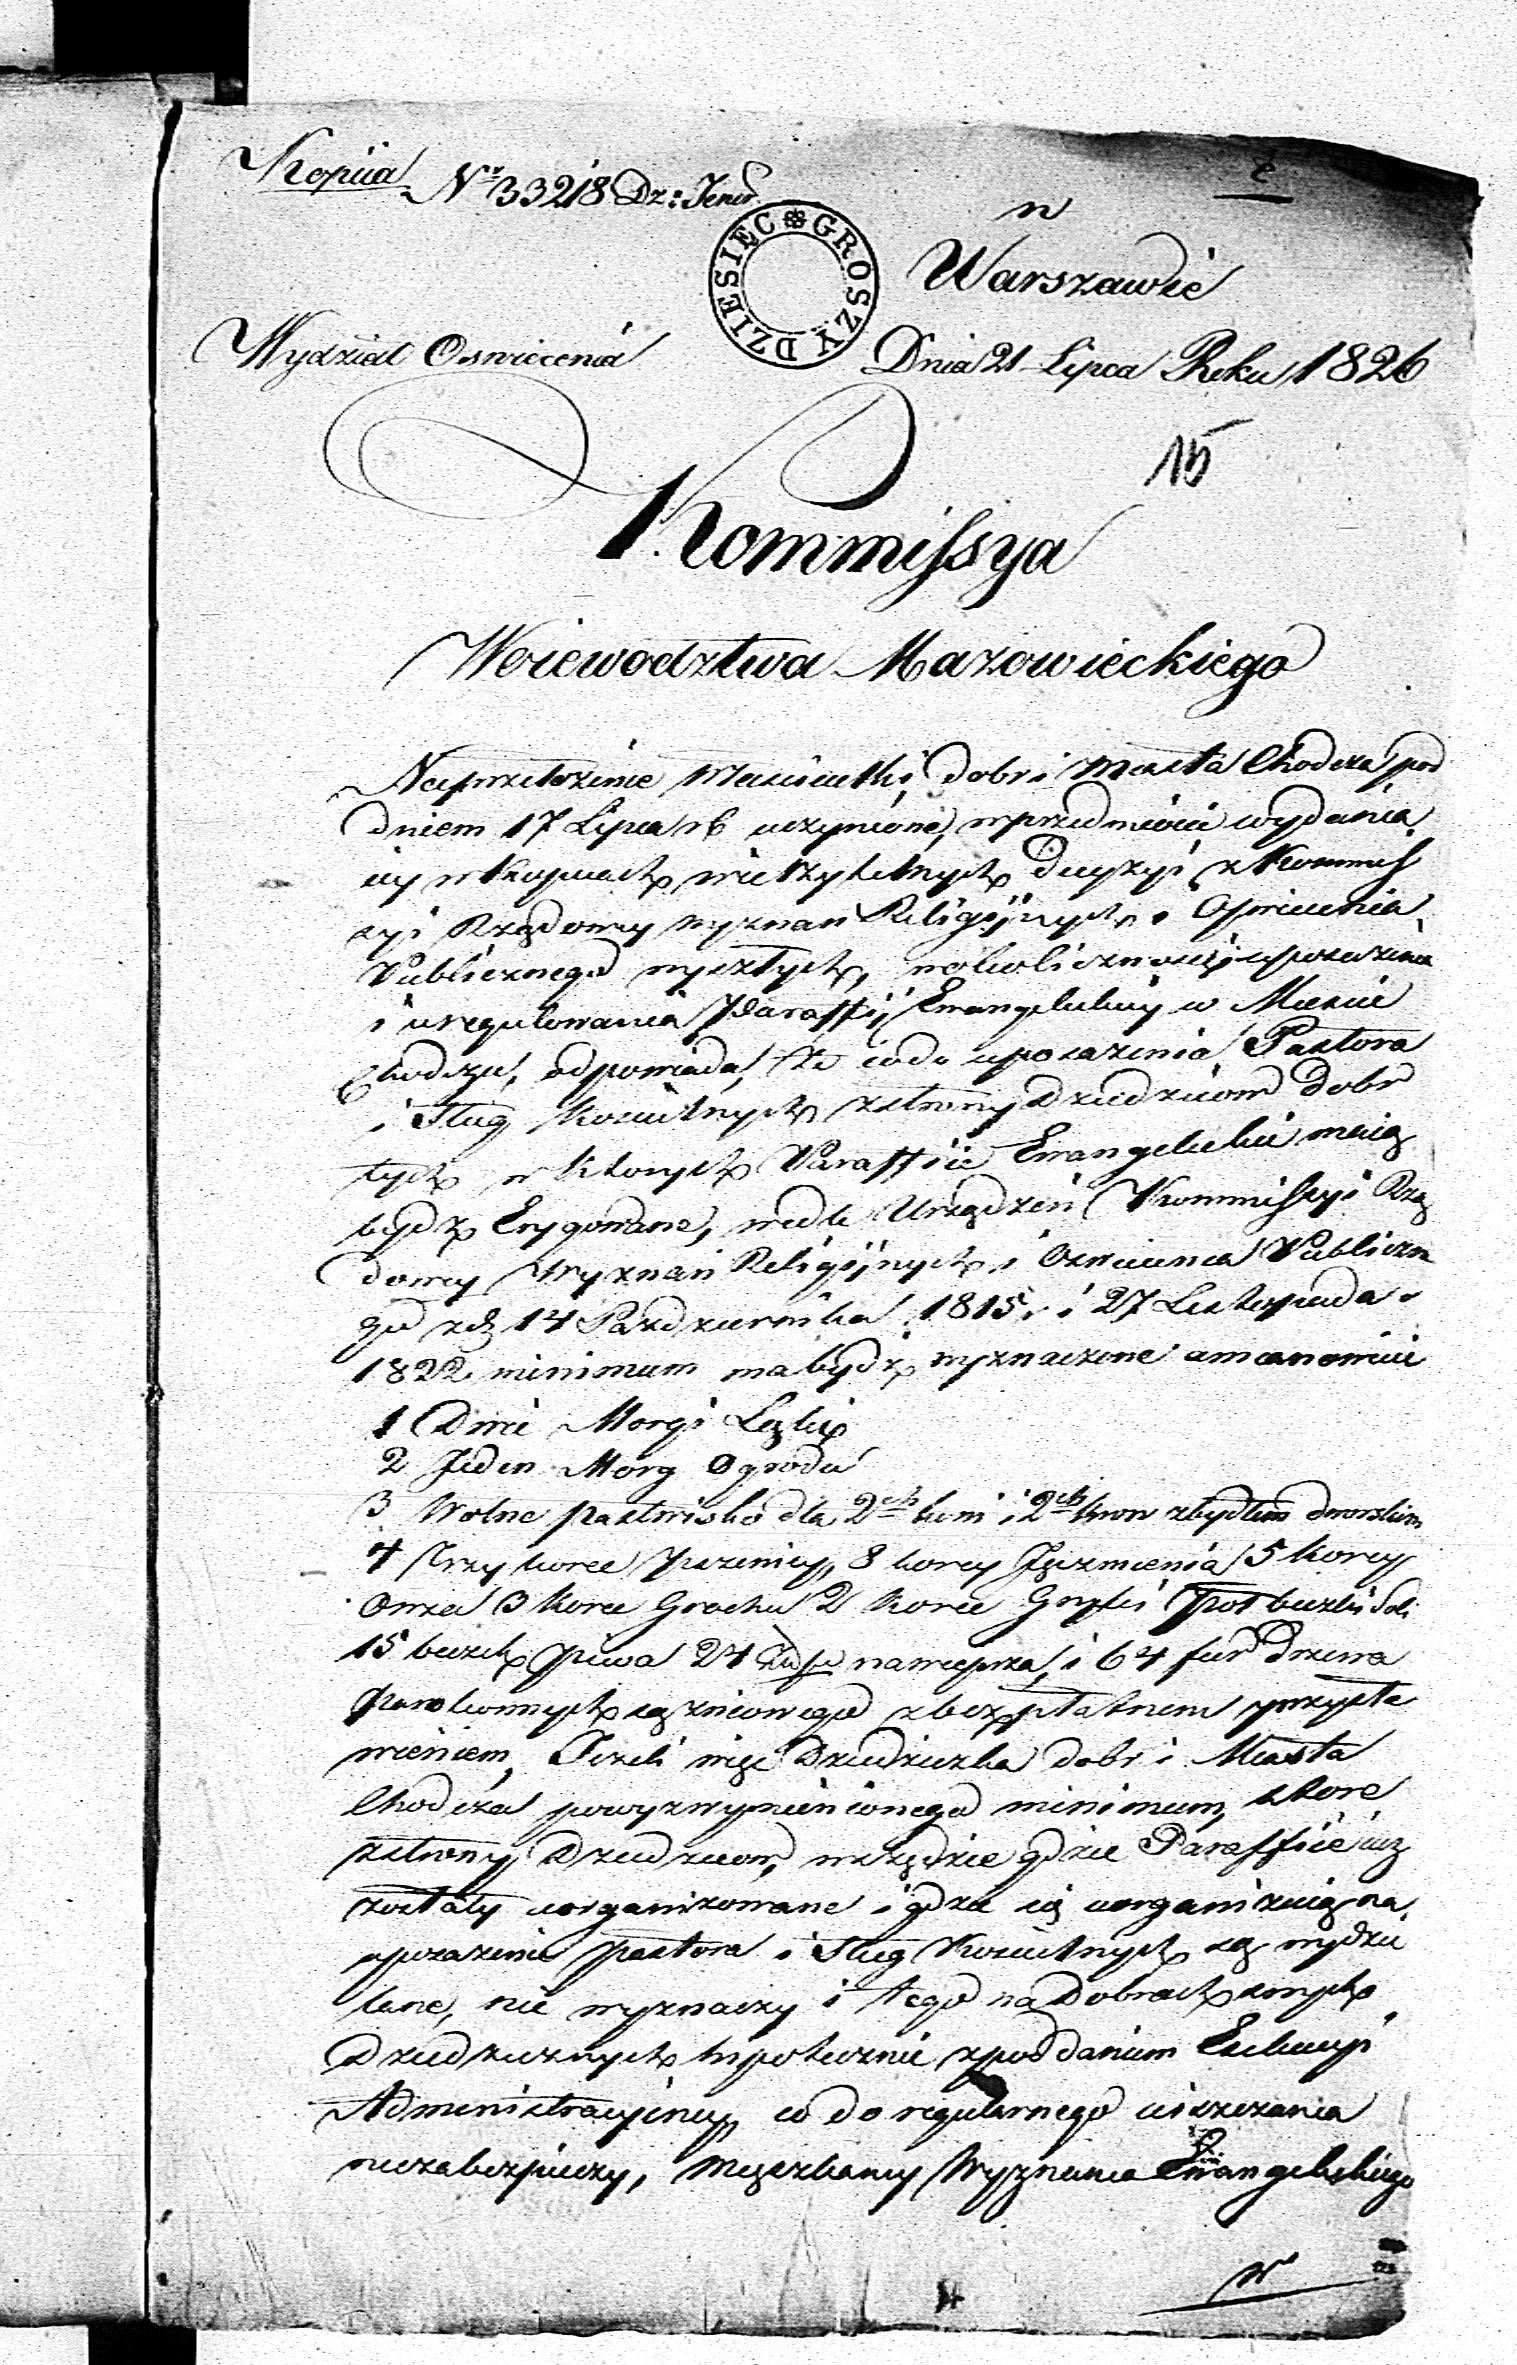 Kopiia Nr 33218 Dz: Jener
w
Warszawie
DZIESIĘC GROSZY
Wydział Oswiecenia Dnia 21 Lipca Roku 1826
15
Kommissya
Woiewodztwa Mazowieckiego
Na przełożenie Właścicielki dobr i Miasta Chodcza pod
dniem 17 Lipca rb uczynione, w przedmiocie wydania
iey w Kopiach wierzytelnych Decyzyi z Kommis
syi Rządowey Wyznań Religiynych i Oswiecenia
Publicznego wyszłych, w okoliczności uposażenia
i uregulowania Paraffij Ewangelickiey w Miescie
Chodczu, odpowiada, że co do uposażenia Pastora
i Sług Kościelnych ze strony Dziedziców dobr
tych w ktorych Paraffie Ewangelickie maią
bydz Erygowane, wedle Urządzeń Kommissyi Rzą
dowey Wyznań Religijnych i Oswiecenia Publiczne
go z d. 14 Pazdziernika 1815 r. i 27 Listopada
1822 minimum ma bydz wyznaczone a mianowicie
1 Dwie Morgi Łąki
2 Jeden Morg Ogrodu
3 Wolne pastwisko dla 2ch koni i 2ch krow z bydłem dworskim
4 Trzy korce Pszenicy, 8 korcy Jęczmienia 5 korcy
Owsa 3 korce Grochu 2 korce Gryki Poł beczki Soli
15 beczek Piwa 24 na wieprza, i 64 fur Drzewa
Parokonnych sążniowego z bezpłatnem przysta
wieniem, Jeżeli więc Dziedziczka dobr i Miasta
Chodcza powyzwymienionego minimum, ktore
ze strony Dziedziców, wszędzie gdzie Paraffie iuż
zostały uorganizowane i gdzie się uorganizuią na
uposażenie Pastora i Sług Kościelnych są wydzie
lane, nie wyznaczy i tego na Dobrach swych
Dziedzicznych hypotecznie z poddaniem Exekucyi
Administracyiney, co do regularnego uiszczania
niezabezpieczy, Mieszkancy Wyznania Ewangelickiego
w